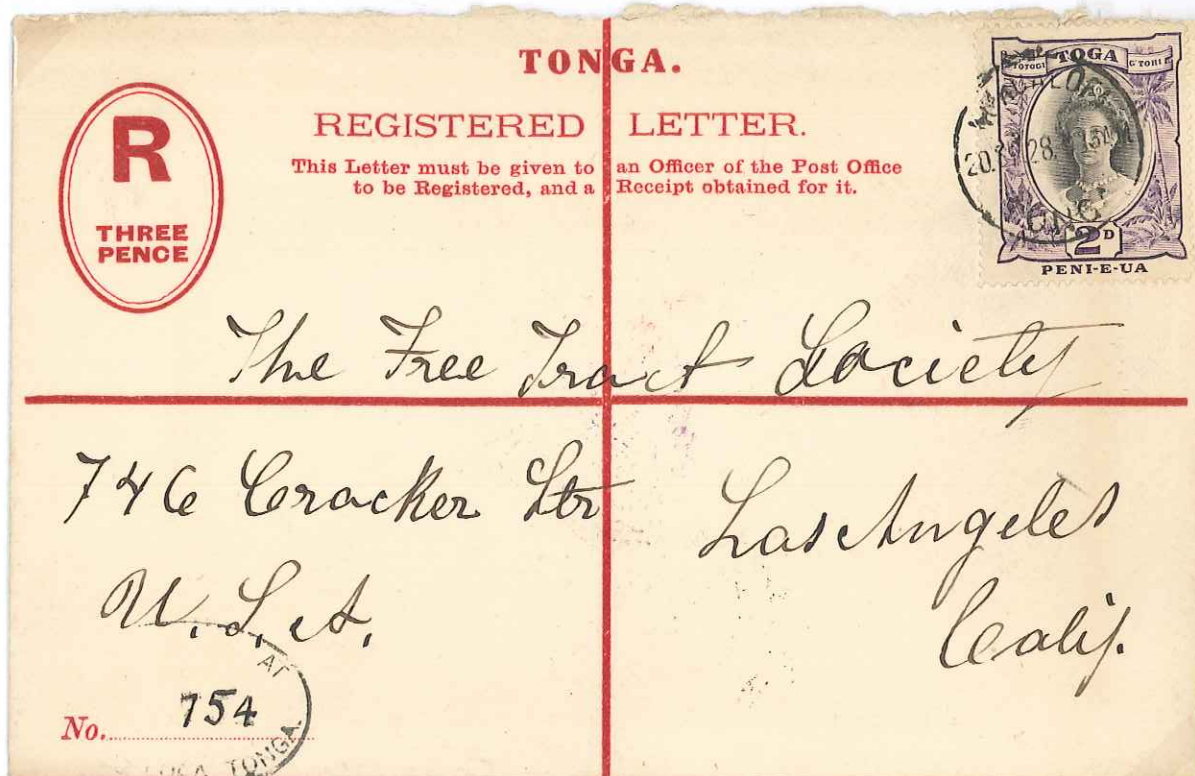 TONGA.
R
THREE
PENCE
REGISTERED LETTER.
This Letter must be given to an Officer of the Post Office
to be Registered, and a Receipt obtained for it.
TOTOGI TOGA G'TOHI
20. 28.
2D
PENI-E-UA
The Free Tract Society
746 Crocker Str
Los Angeles
U.S.A.
Calif.
AT
No. 754
TONGA